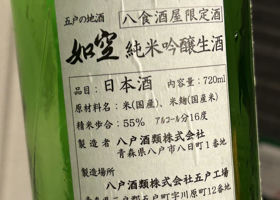 五戸の地酒
八食酒屋限定酒
如空 純米吟醸生酒
品目：日本酒 内容量：720ml
原材料名：米(国産)、米麹(国産米)
精米歩合：55% アルコール分16度
製造者 八戸酒類株式会社
青森県八戸市八日町1番地
製造場所
八戸酒類株式会社五戸工場
青森県三戸郡五戸町字川原町12番地